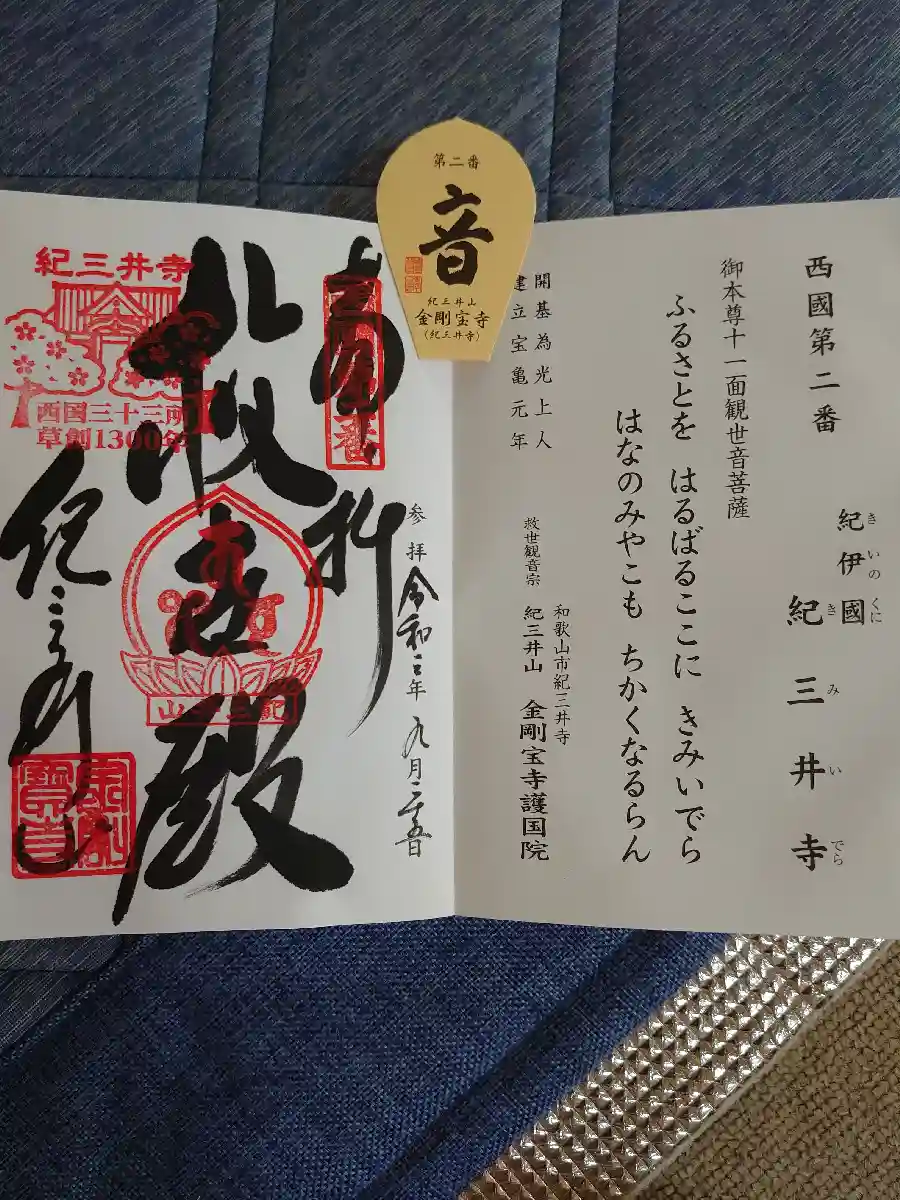 西國第二番
紀伊國
きいのくに
紀三井寺
きみいでら
御本尊十一面観世音菩薩
ふるさとを はるばるここに きみいでら
はなのみやこも ちかくなるらん
開基為光上人
建立宝亀元年
和歌山市紀三井寺
救世観音宗 紀三井山 金剛宝寺護国院
第二番
音
紀三井山
金剛宝寺
(紀三井寺)
奉拝
参拝 令和二年 九月二十五日
救世殿
紀三井寺
西国三十三所
草創1300年
紀三井山